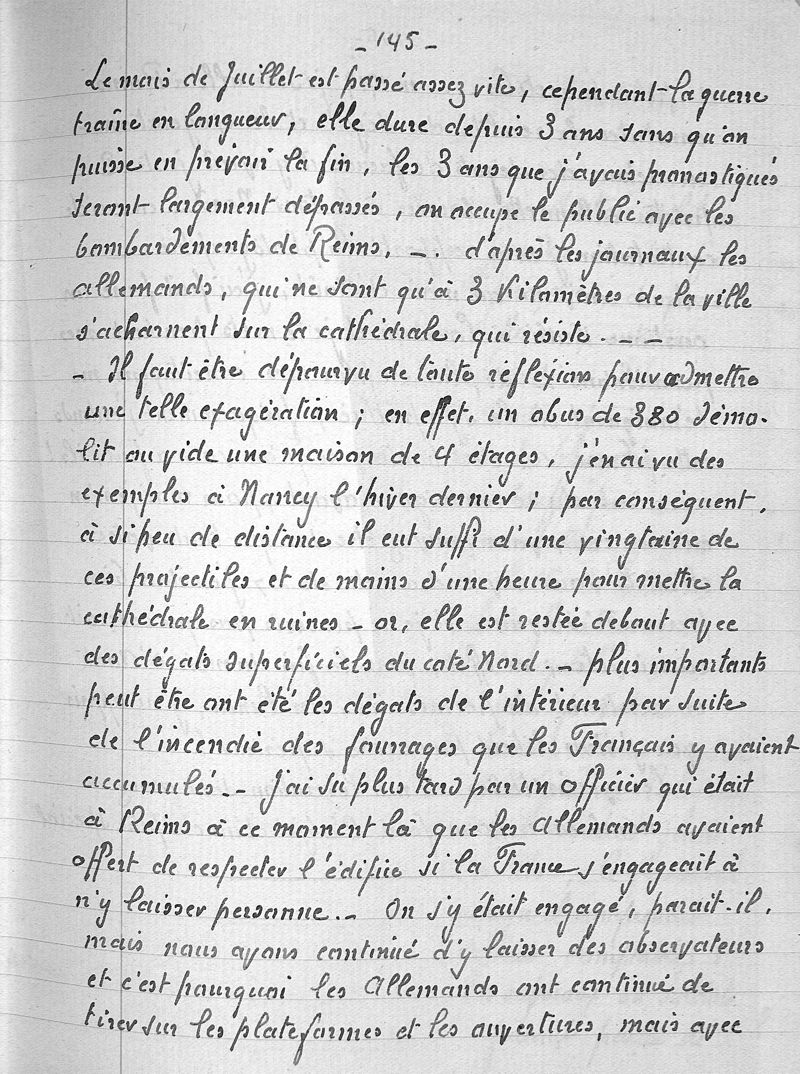 - 145 -
Le mois de Juillet est passé assez vite, cependant la guerre
traîne en langueur, elle dure depuis 3 ans sans qu'on
puisse en prévoir la fin, les 3 ans que j'avais pronostiqués
seront largement dépassés, on occupe le public avec les
bombardements de Reims, -. d'après les journaux les
allemands, qui ne sont qu'à 3 Kilomètres de la ville
s'acharnent sur la cathédrale, qui résiste. - -
- Il faut être dépourvu de toute réflexion pour admettre
une telle exagération ; en effet, un obus de 380 démo-
lit ou vide une maison de 4 étages, j'en ai vu des
exemples à Nancy l'hiver dernier ; par conséquent,
à si peu de distance il eut suffi d'une vingtaine de
ces projectiles et de moins d'une heure pour mettre la
cathédrale en ruines - or, elle est restée debout avec
des dégats superficiels du coté Nord. - plus importants
peut être ont été les dégats de l'intérieur par suite
de l'incendie des fourrages que les Français y avaient
accumulés. - J'ai su plus tard par un officier qui était
à Reims à ce moment là que les Allemands avaient
offert de respecter l'édifice si la France s'engageait à
n'y laisser personne. - On s'y était engagé, parait-il,
mais nous avons continué d'y laisser des observateurs
et c'est pourquoi les Allemands ont continué de
tirer sur les plateformes et les ouvertures, mais avec